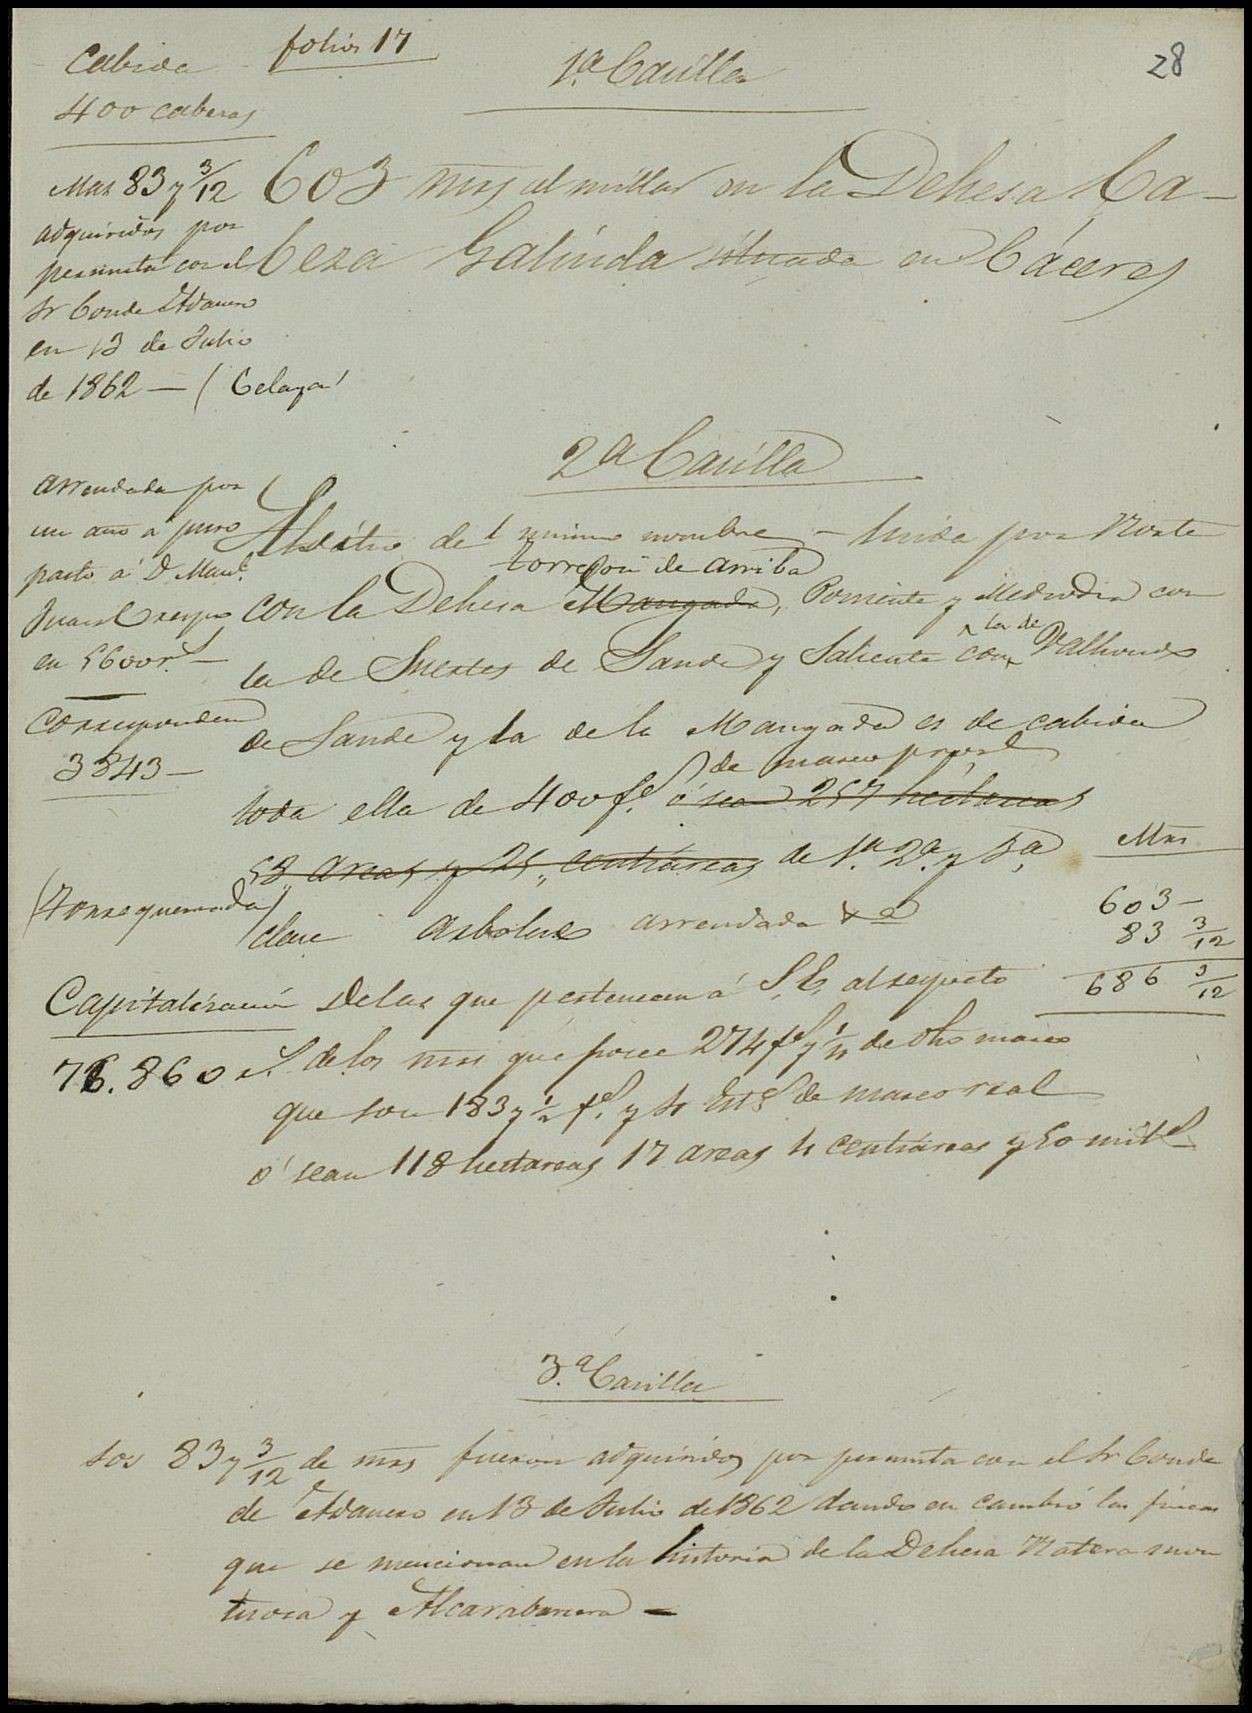 28
folios 17
Cabida
400 cabezas
1.ª Casilla
603 mrs al millar en la Dehesa Ca-
beza Galinda situada en Cáceres
Mas 83 y 3/12
adquiridos por
permuta con el
Sr Conde Adanero
en 13 de Julio
de 1862 — (Celaya)
2ª Casilla
Al sitio de l mismo nombre — linda por Norte
torrejon de arriba
con la Dehesa Mangada, Poniente y Mediodia con
la de Suertes de Sande y Saliente con la de Valhondo
de Sande y la de la Mangada es de cabida
de marco prov.l
toda ella de 400 f.s ó sean 257 hectareas
58 areas y 25 centiareas de 1.ª 2.ª y 3.ª
clase Arbolado arrendada &ª
arrendada por
un año a puro
pasto á D. Man.l
Juan Crespo
en 5600 r.s —
Corresponden
3843 —
(Torrequemada)
Mrs
603 —
83 3/12
686 3/12
Capitalización
76.860 r.s
De las que pertenecen á S.E. al respecto
de los mrs que posee 274 f.s y 1/11 de dho marco
que son 183 y 1/2 f.s y de marco real
ó sean 118 hectareas 17 areas 11 centiareas y 50 milé.s
3.ª Casilla
Los 83 y 3/12 de mrs fueron adquiridos por permuta con el Sr Conde
de Adanero en 13 de Julio de 1862 dando en cambio las fincas
que se mencionan en la historia de la Dehesa Natera mon
turosa y Alcarabanera —